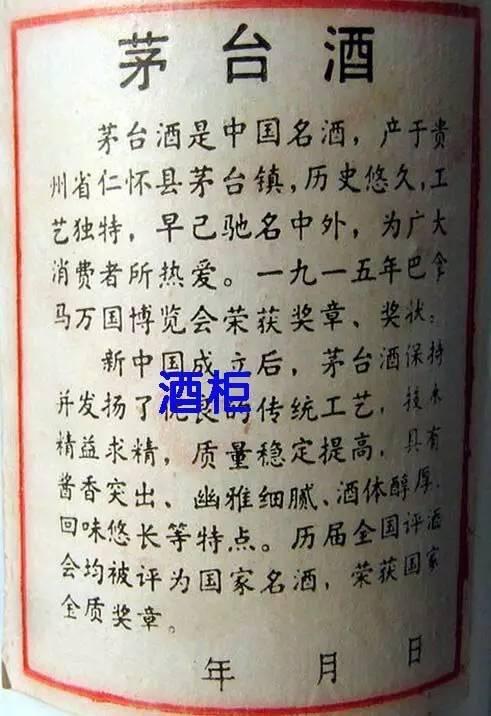 茅台酒
茅台酒是中国名酒，产于贵
州省仁怀县茅台镇，历史悠久，工
艺独特，早已驰名中外，为广大
消费者所热爱。一九一五年巴拿
马万国博览会荣获奖章、奖状。
新中国成立后，茅台酒保持
并发扬了优良的传统工艺，技术
精益求精，质量稳定提高，具有
酱香突出、幽雅细腻、酒体醇厚、
回味悠长等特点。历届全国评酒
会均被评为国家名酒，荣获国家
金质奖章。
年 月 日
酒柜